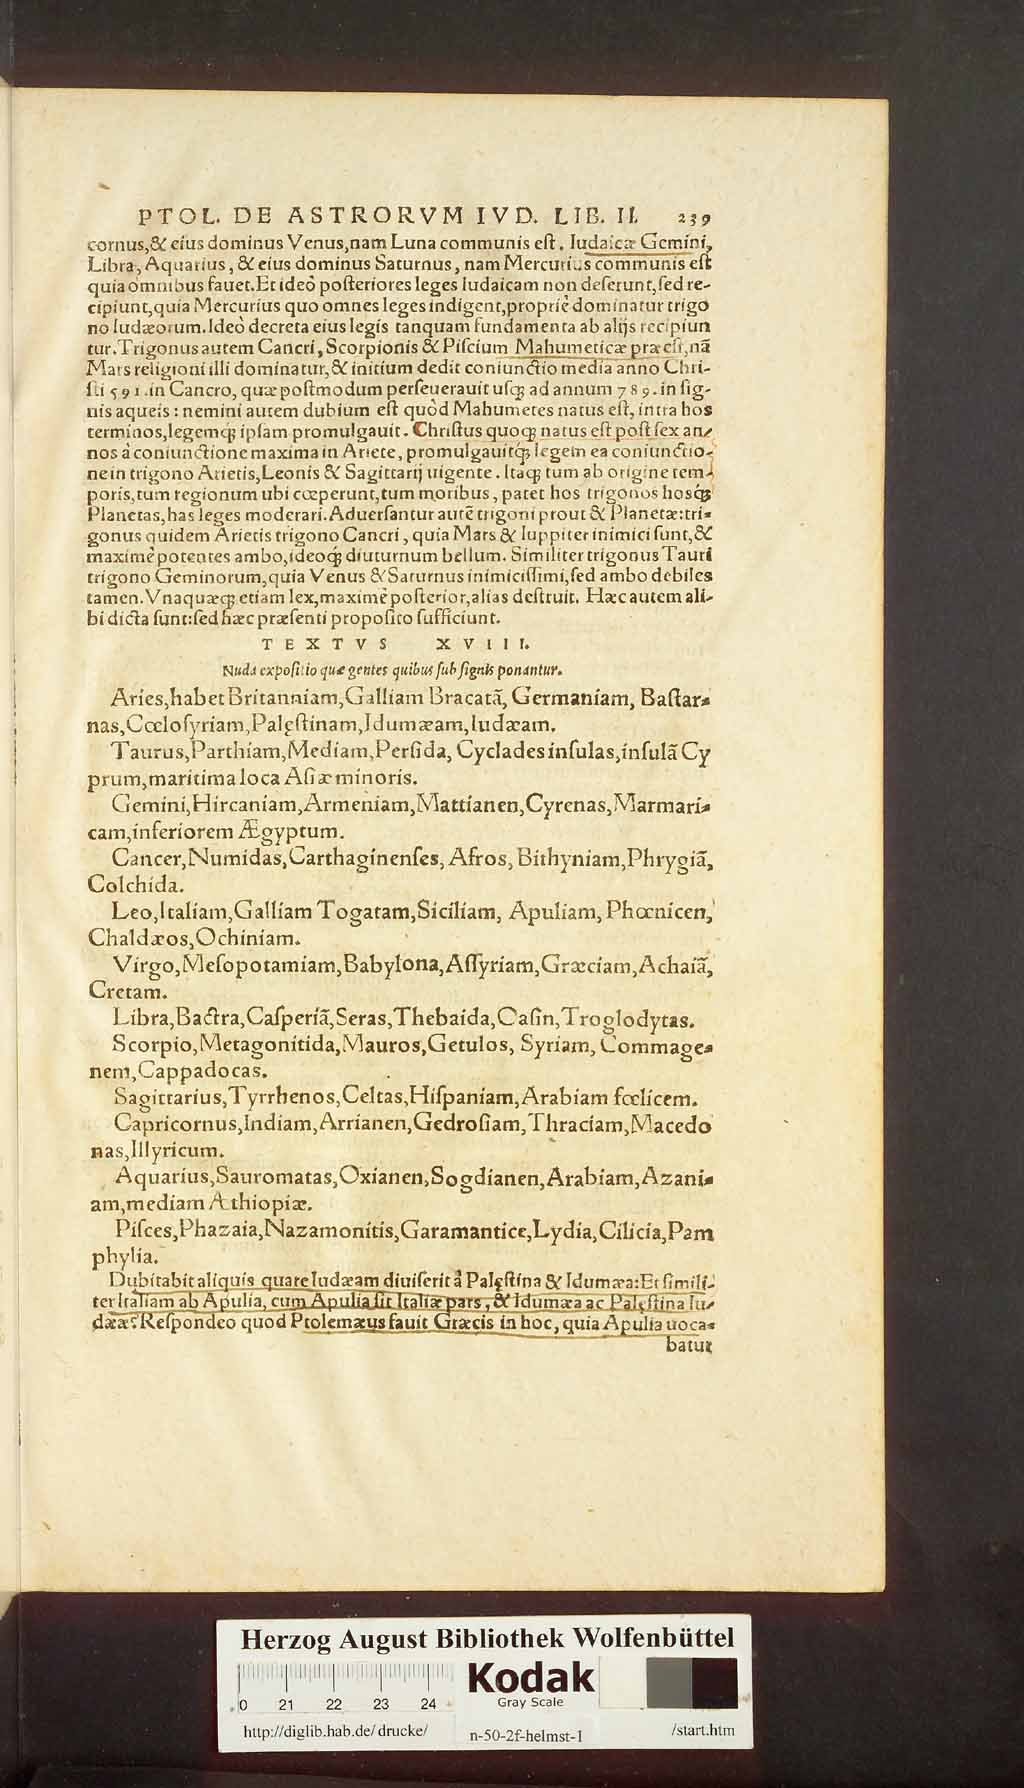 PTOL. DE ASTRORVM IVD. LIB. II. 239
cornus,& eius dominus Venus,nam Luna communis eſt. Iudaicæ Gemini,
Libra, Aquarius, & eius dominus Saturnus, nam Mercurius communis eſt
quia omnibus fauet.Et ideò poſteriores leges Iudaicam non deſerunt,ſed re-
cipiunt,quia Mercurius quo omnes leges indigent,propriè dominatur trigo
no Iudæorum.Ideò decreta eius legis tanquam fundamenta ab alijs recipiun
tur.Trigonus autem Cancri, Scorpionis & Piſcium Mahumeticæ præeſt,nã
Mars religioni illi dominatur,& initium dedit coniunctio media anno Chri-
ſti 591.in Cancro, quæ poſtmodum perſeuerauit uſq; ad annum 789.in ſig-
nis aqueis: nemini autem dubium eſt quòd Mahumetes natus eſt, intra hos
terminos,legemq́; ipſam promulgauit. Chriſtus quoq; natus eſt poſt ſex an-
nos à coniunctione maxima in Ariete, promulgauitq́; legem ea coniunctio-
ne in trigono Arietis,Leonis & Sagittarij uigente. Itaq; tum ab origine tem-
poris,tum regionum ubi cœperunt,tum moribus, patet hos trigonos hosq́;
Planetas,has leges moderari.Aduerſantur autē trigoni prout & Planetæ:tri-
gonus quidem Arietis trigono Cancri, quia Mars & Iuppiter inimici ſunt,&
maximè potentes ambo,ideoq́; diuturnum bellum. Similiter trigonus Tauri
trigono Geminorum,quia Venus & Saturnus inimiciſſimi,ſed ambo debiles
tamen.Vnaquæq; etiam lex,maximè poſterior,alias deſtruit. Hæc autem ali-
bi dicta ſunt:ſed hæc præſenti propoſito ſufficiunt.
TEXTVS XVIII.
Nuda expoſitio quæ gentes quibus ſub ſignis ponantur.
Aries,habet Britanniam,Galliam Bracatã, Germaniam, Baſtar-
nas,Cœloſyriam,Palęſtinam,Idumæam,Iudæam.
Taurus,Parthiam,Mediam,Perſida, Cyclades inſulas,inſulã Cy
prum,maritima loca Aſiæ minoris.
Gemini,Hircaniam,Armeniam,Mattianen,Cyrenas,Marmari-
cam,inferiorem Ægyptum.
Cancer,Numidas,Carthaginenſes, Afros, Bithyniam,Phrygiã,
Colchida.
Leo,Italiam,Galliam Togatam,Siciliam, Apuliam, Phœnicen,
Chaldæos,Ochiniam.
Virgo,Meſopotamiam,Babylona,Aſſyriam,Græciam,Achaiã,
Cretam.
Libra,Bactra,Caſperiã,Seras,Thebaida,Oaſin,Troglodytas.
Scorpio,Metagonitida,Mauros,Getulos, Syriam, Commage-
nem,Cappadocas.
Sagittarius,Tyrrhenos,Celtas,Hiſpaniam,Arabiam fœlicem.
Capricornus,Indiam,Arrianen,Gedroſiam,Thraciam,Macedo
nas,Illyricum.
Aquarius,Sauromatas,Oxianen,Sogdianen,Arabiam,Azani-
am,mediam Æthiopiæ.
Piſces,Phazaia,Nazamonitis,Garamantice,Lydia,Cilicia,Pam
phylia.
Dubitabit aliquis quare Iudæam diuiſerit à Palęſtina & Idumæa:Et ſimili-
ter Italiam ab Apulia, cum Apulia ſit Italiæ pars, & Idumæa ac Palęſtina Iu-
dææ? Reſpondeo quod Ptolemæus fauit Græcis in hoc, quia Apulia uoca-
batur
Herzog August Bibliothek Wolfenbüttel
Kodak
Gray Scale
0 21 22 23 24
http://diglib.hab.de/drucke/ n-50-2f-helmst-1 /start.htm